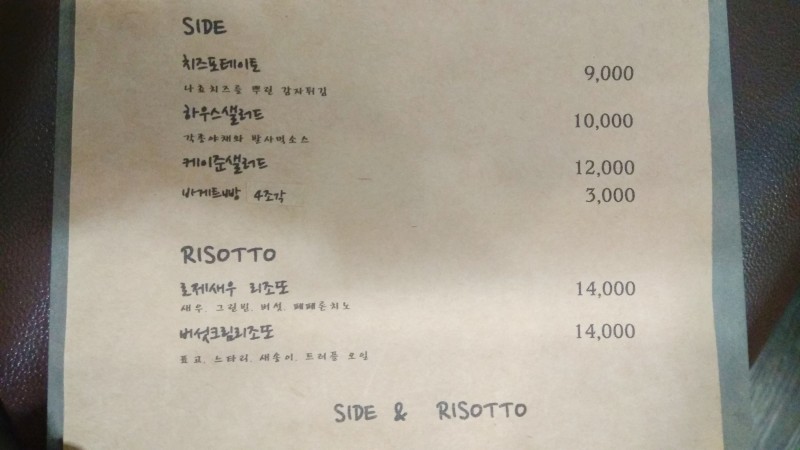 SIDE
치즈포테이토 9,000
나쵸치즈를 뿌린 감자튀김
하우스샐러드 10,000
각종야채와 발사믹소스
케이준샐러드 12,000
바게트빵 4조각 3,000
RISOTTO
로제새우 리조또 14,000
새우, 그린빈, 버섯, 페페론치노
버섯크림리조또 14,000
표고, 느타리, 새송이, 트러플 오일
SIDE & RISOTTO